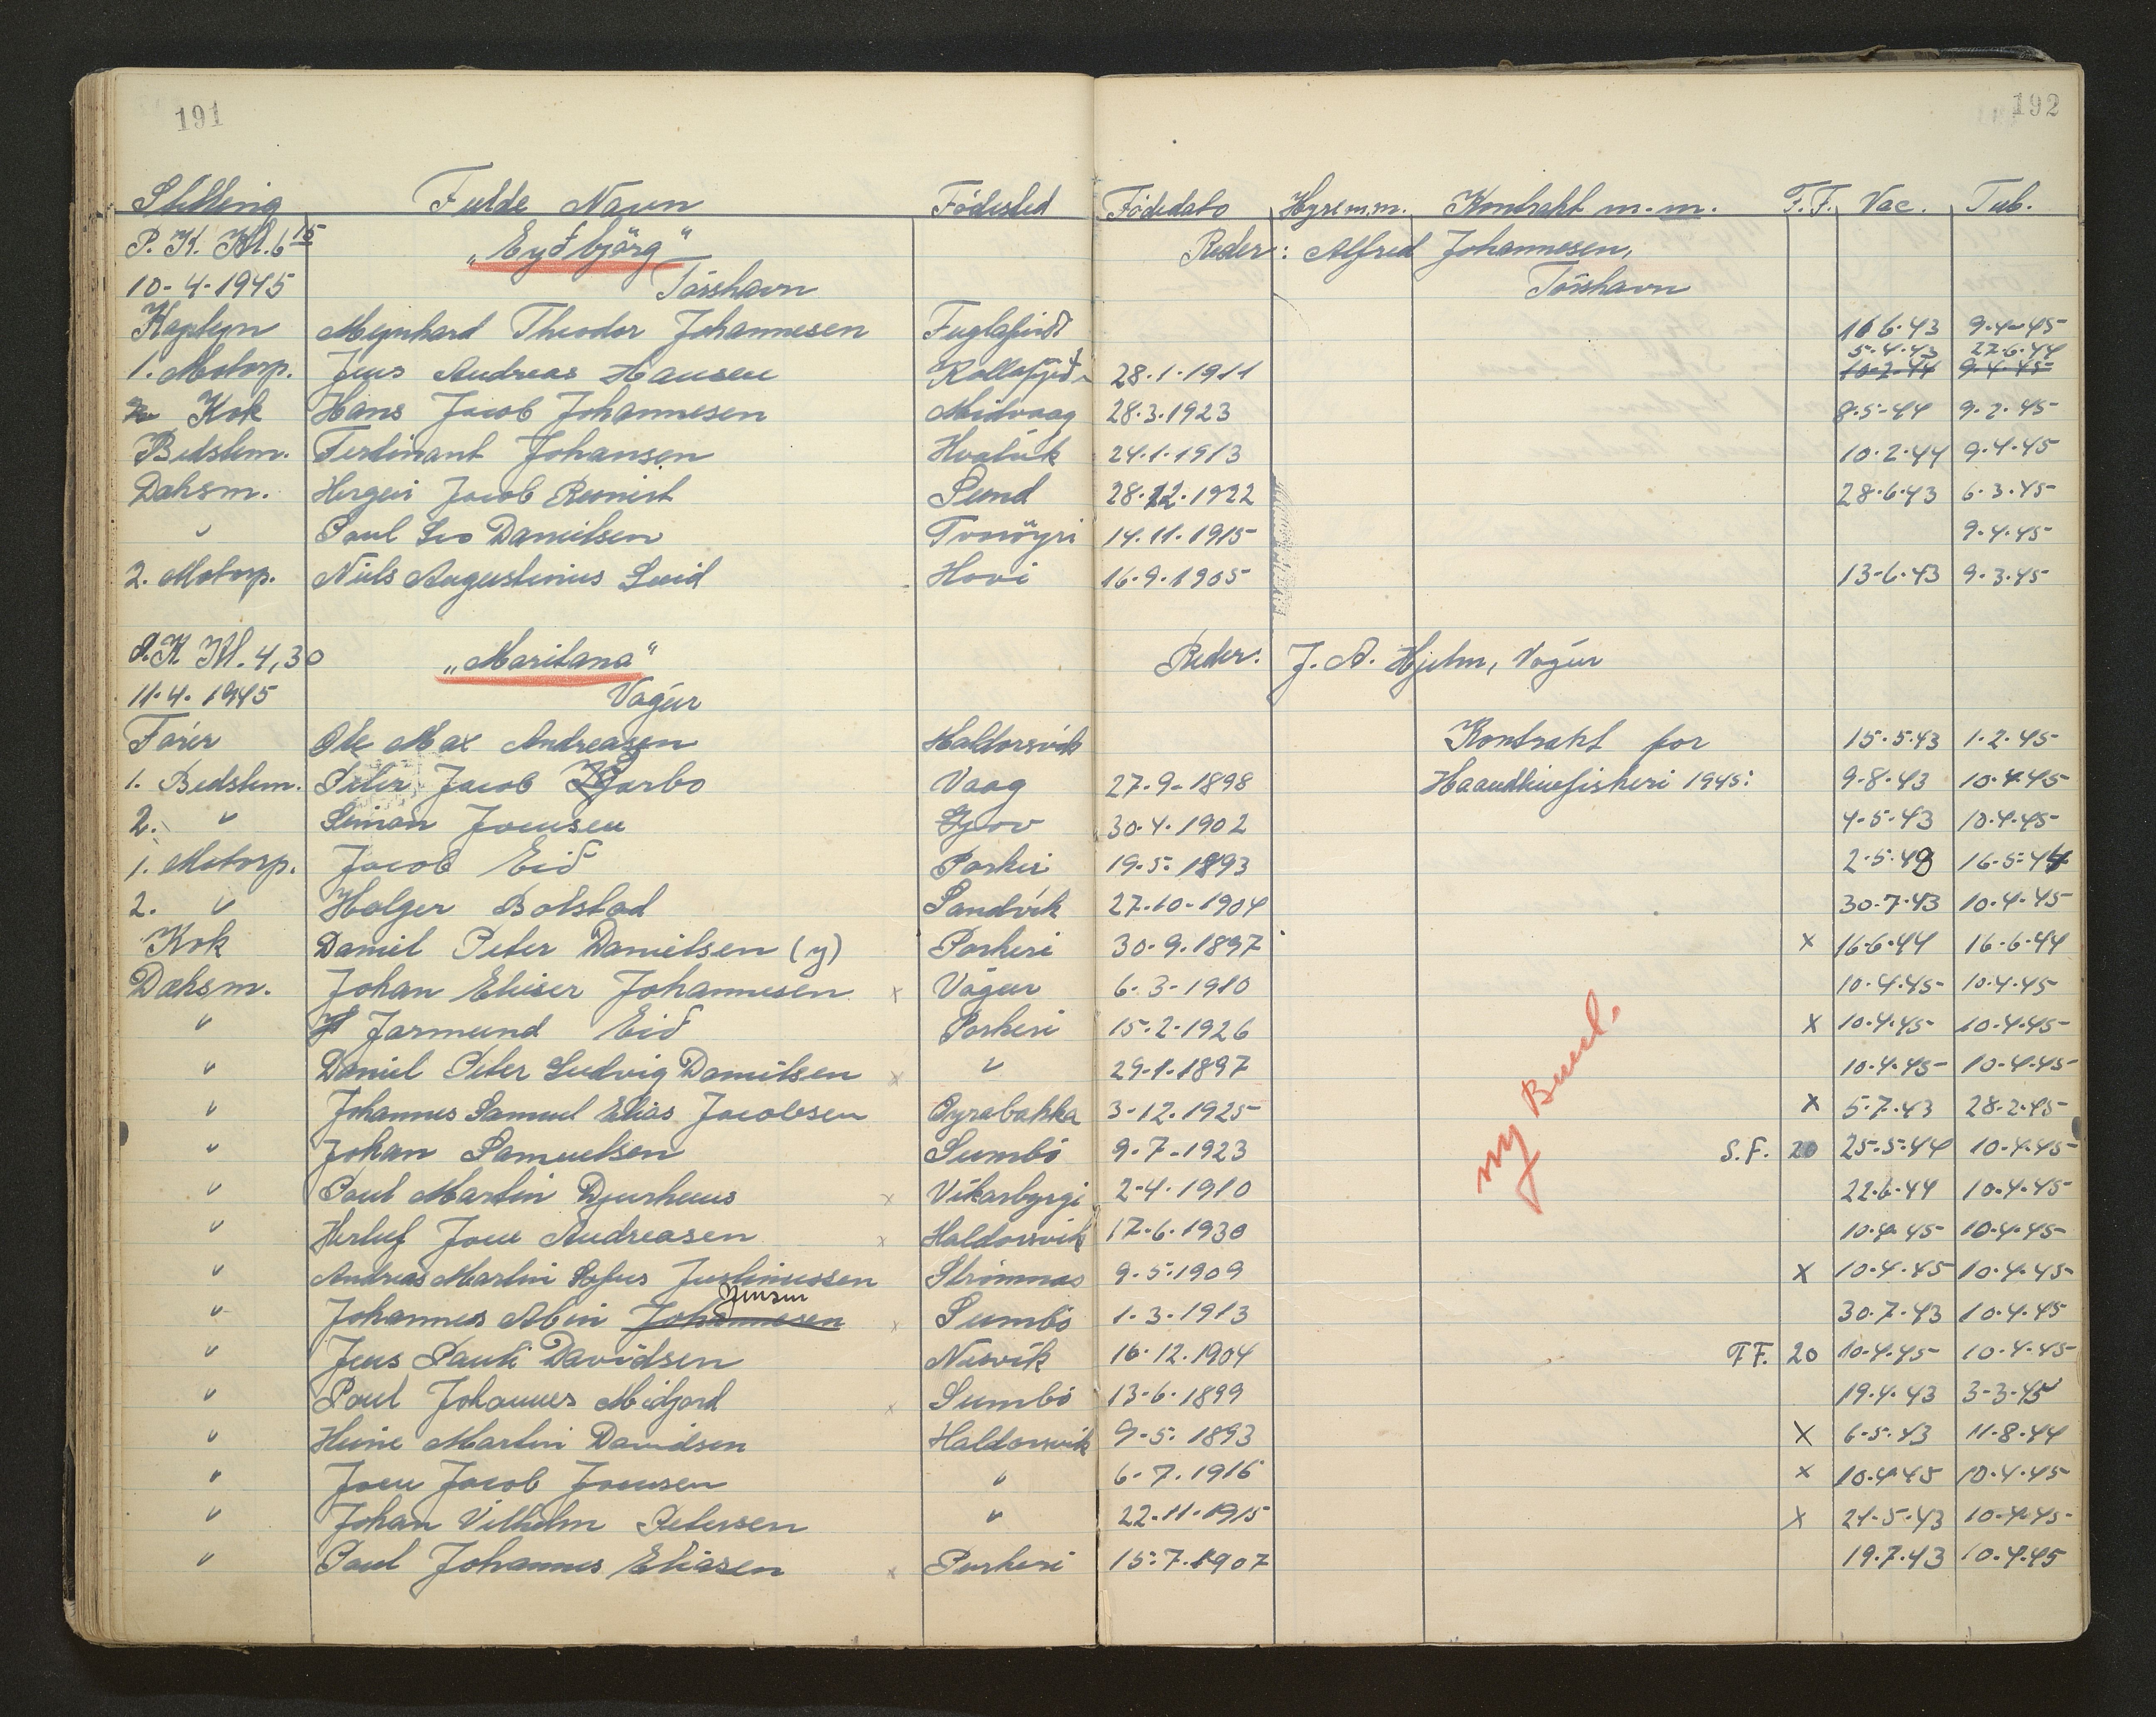 191
192
Stilling Fulde Navn Födested Födedato Hyre m.m. Kontrakt m.m. F.F. Vac. Tub.
P. K. Kl. 6 15 „Eyðbjörg“ Reder: Alfred Johannesen,
10-4-1945 Tórshavn Tórshavn
Kaptejn Mejnhard Theodor Johannesen Fuglafirði 16.6.43 9-4-45
5.4.43 27.6.44
1. Motorp. Jens Andreas Hansen Kollafjørð 28.1.1911 10-2-44 9-4-45
Kok Hans Jacob Johannesen Midvaag 28.3.1923 8-5-44 9.2.45
Bedstem. Ferdinant Johansen Hvalvík 24.1.1913 10.2.44 9.4.45
Dæksm. Hergeir Jacob Reinert Sund 28.12.1922 28.6.43 6.3.45
" Poul Leo Danielsen Tvöröyri 14.11.1915 9.4.45
2. Motorp. Niels Augustinius Luid Hovi 16.9.1905 13-6.43 9.3.45
P.K. Kl. 4,30 „Maritana“ Reder: J. A. Hjelm, Vágur
11.4.1945 Vágur
Fører Ole Max Andreasen Haldorsvik Kontrakt for 15.5.43 1.2.45
1. Bedstem. Peter Jacob Garbo Vaag 27.9-1898 Haandlinefiskeri 1945: 9-8.43 10.4.45
2. " Simon Joensen Gjov 30.4.1902 4-5.43 10.4.45
1. Motorp. Jacob Eið Porkeri 19.5.1893 2.5.43 16.5.44
2. " Holger Botstad Sandvík 27.10-1904 30.7.43 10.4.45
Kok Daniel Peter Danielsen (y) Porkeri 30.9.1897 x 16.6.44 16.6.44
Dæksm. Johan Elieser Johannesen x Vágur 6-3-1910 10.4.45 10.4.45
" Jarmund Eið Porkeri 15.2.1926 x 10.4.45 10.4.45
" Daniel Peter Ludvig Danielsen x " 29.1.1897 10.4.45 10.4.45
" Johannes Samuel Elias Jacobsen Oyrabakka 3-12.1925 x 5.7.43 28.2.45
" Johan Samuelsen Sumbö 9.7-1923 S.F. 20 25.5.44 10.4.45
" Poul Martin Djurhuus x Vikarbyrgi 2-4.1910 22.6.44 10.4.45
" Herluf Joen Andreasen x Haldorsvik 17.6.1930 10.4.45 10.4.45
" Andreas Martin Sofus Justinussen Strömnæs 9.5.1909 x 10.4.45 10.4.45
Jensen
" Johannes Abin Johannesen x Sumbö 1.3.1913 30.7.43 10.4.45
" Jens Pauli Davidsen Nesvik 16.12.1904 F.F. 20 10.4.45 10.4.45
" Poul Johannes Midjord x Sumbö 13-6.1899 19.4.43 3-3.45
" Heine Martin Davidsen Haldorsvik 9-5.1893 x 6-5.43 11.8.44
" Joen Jacob Joensen " 6-7.1916 x 10.4.45 10.4.45
" Johan Vilhelm Petersen " 22.11.1915 x 21-5.43 10.4.45
" Poul Johannes Eliasen x Porkeri 15.7.1907 19.7.43 10.4.45
ny Bem.